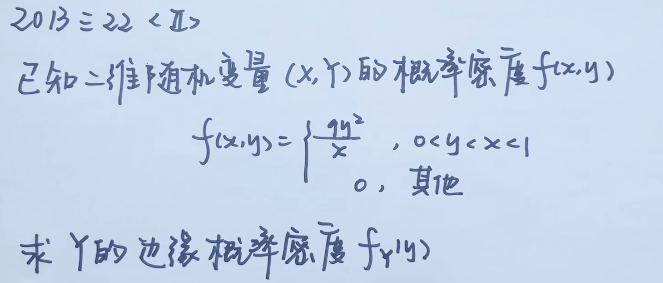 2013 三 22 <II>
已知二维随机变量 (X,Y) 的概率密度 f(x,y)
f(x,y) = { 9y²/x , 0<y<x<1
0, 其他
求 Y 的边缘概率密度 f_Y(y)